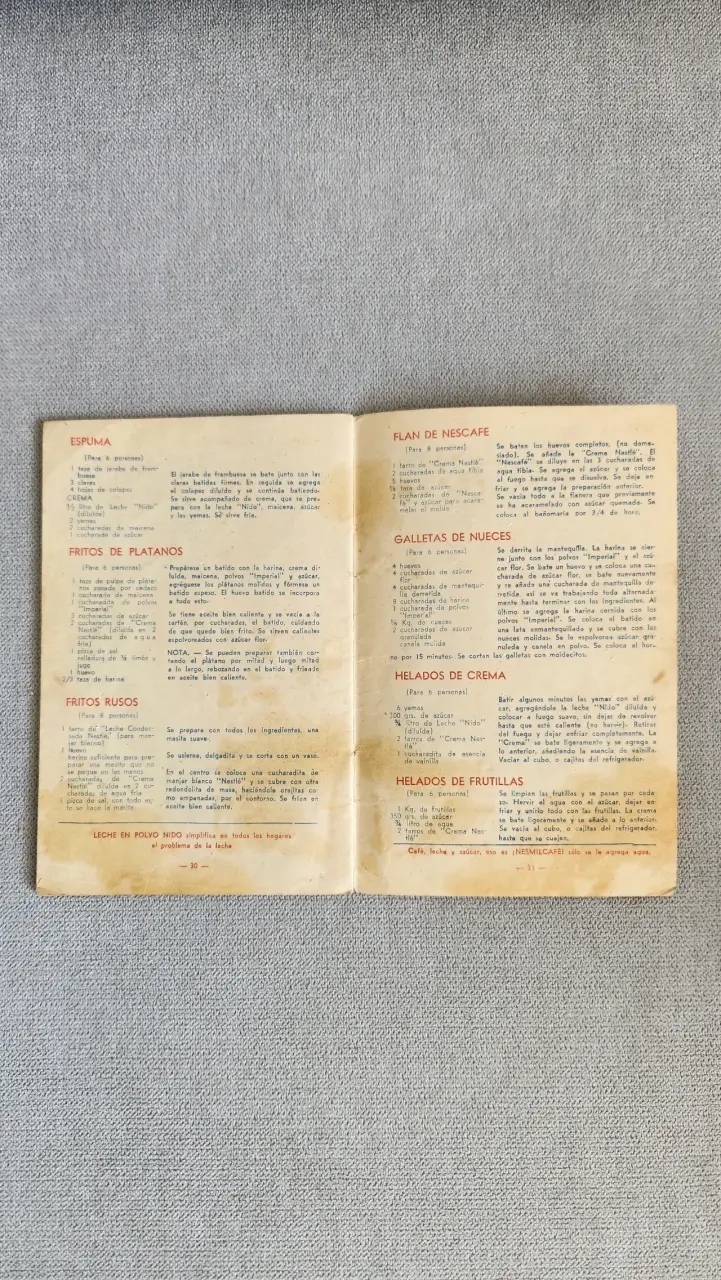 ESPUMA
(Para 6 personas)
1 taza de jarabe de fram-
buesa
3 claras
4 hojas de colapez
CREMA
1½ litro de Leche "Nido"
(diluída)
2 yemas
2 cucharadas de maicena
1 cucharada de azúcar
El jarabe de frambuesa se bate junto con las
claras batidas firmes. En seguida se agrega
el colapez diluído y se continúa batiendo.
Se sirve acompañado de crema, que se pre-
para con la leche "Nido", maicena, azúcar
y las yemas. Se sirve fría.
FRITOS DE PLATANOS
(Para 6 personas)
1 taza de pulpa de pláta-
nos pasada por cedazo
1 cucharada de maicena
1 cucharadita de polvos
"Imperial"
3 cucharadas de azúcar
2 cucharadas de "Crema
Nestlé" (diluída en 2
cucharadas de agua
fría)
1 pizca de sal
ralladura de ½ limón y
jugo
1 huevo
2/3 taza de harina
Prepárese un batido con la harina, crema di-
luída, maicena, polvos "Imperial" y azúcar,
agréguese los plátanos molidos y fórmese un
batido espeso. El huevo batido se incorpora
a todo esto.
Se tiene aceite bien caliente y se vacía a la
sartén, por cucharadas, el batido, cuidando
de que quede bien frito. Se sirven calientes
espolvoreados con azúcar flor.
NOTA. — Se pueden preparar también cor-
tando el plátano por mitad y luego mitad
a lo largo, rebozando en el batido y friendo
en aceite bien caliente.
FRITOS RUSOS
(Para 8 personas)
1 tarro de "Leche Conden-
sada Nestlé" (para man-
jar blanco)
1 huevo
harina suficiente para pre-
parar una masita que no
se pegue en las manos
2 cucharadas de "Crema
Nestlé" diluída en 2 cu-
charadas de agua fría
1 pizca de sal, con todo es-
to se hace la masita.
Se prepara con todos los ingredientes, una
masita suave.
Se uslerea, delgadita y se corta con un vaso.
En el centro se coloca una cucharadita de
manjar blanco "Nestlé" y se cubre con otra
redondelita de masa, haciéndole orejitas co-
mo empanadas, por el contorno. Se fríen en
aceite bien caliente.
LECHE EN POLVO NIDO simplifica en todos los hogares
el problema de la leche
— 30 —
FLAN DE NESCAFE
(Para 8 personas)
1 tarro de "Crema Nestlé"
2 cucharadas de agua tibia
5 huevos
taza de azúcar
2 cucharadas de "Nesca-
fé" y azúcar para acara-
melar el molde
Se baten los huevos completos, (no dema-
siado). Se añade la "Crema Nestlé". El
"Nescafé" se diluye en las 2 cucharadas de
agua tibia. Se agrega el azúcar y se coloca
al fuego hasta que se disuelva. Se deja en-
friar y se agrega la preparación anterior.
Se vacía todo a la flanera que previamente
se ha acaramelado con azúcar quemada. Se
coloca al bañomaría por 3/4 de hora.
GALLETAS DE NUECES
(Para 6 personas)
4 huevos
4 cucharadas de azúcar
flor
4 cucharadas de mantequi-
lla derretida
8 cucharadas de harina
1 cucharada de polvos
"Imperial"
Kg. de nueces
2 cucharadas de azúcar
granulada
canela molida
Se derrite la mantequilla. La harina se cier-
ne junto con los polvos "Imperial" y el azú-
car flor. Se bate un huevo y se coloca una cu-
charada de azúcar flor, se bate nuevamente
y se añade una cucharada de mantequilla de-
rretida, así se va trabajando todo alternada-
mente hasta terminar con los ingredientes. Al
último se agrega la harina cernida con los
polvos "Imperial". Se coloca el batido en
una lata enmantequillada y se cubre con las
nueces molidas. Se le espolvorea azúcar gra-
nulada y canela en polvo. Se coloca el hor-
no por 15 minutos. Se cortan las galletas con moldecitos.
HELADOS DE CREMA
(Para 6 personas)
6 yemas
300 grs. de azúcar
¾ litro de Leche "Nido"
(diluída)
2 tarros de "Crema Nes-
tlé"
1 cucharadita de esencia
de vainilla
Batir algunos minutos las yemas con el azú-
car, agregándole la leche "Nido" diluída y
colocar a fuego suave, sin dejar de revolver
hasta que esté caliente (no hervir). Retirar
del fuego y dejar enfriar completamente. La
"Crema" se bate ligeramente y se agrega a
lo anterior, añadiendo la esencia de vainilla.
Vaciar al cubo, o cajitas del refrigerador.
HELADOS DE FRUTILLAS
(Para 6 personas)
1 Kg. de frutillas
350 grs. de azúcar
¾ litro de agua
2 tarros de "Crema Nes-
tlé"
Se limpian las frutillas y se pasan por ceda-
zo. Hervir el agua con el azúcar, dejar en-
friar y unirlo todo con las frutillas. La crema
se bate ligeramente y se añade a lo anterior.
Se vacía al cubo, o cajitas del refrigerador
hasta que se cuajen.
Café, leche y azúcar, eso es ¡NESMILCAFE! sólo se le agrega agua.
— 31 —